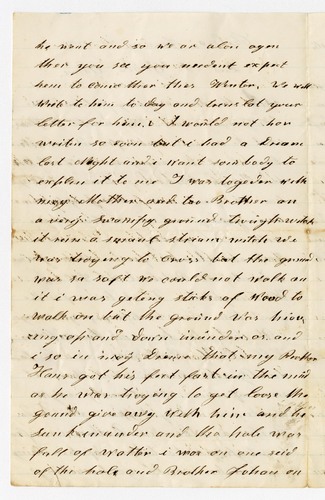 he went and so we ar alon agen
ther you see you neednt expet
him to come ther this Winter, We will
Write to him to day and send let your
letter for him, I would not hav
writen so soon but i had a Dream
last Night and i want sombody to
explen it to me I was togeder with
may Mother and two Brother on
a very swampy ground trough witch
it run a small stream witch we
was trogying to cross but the ground
was so soft we could not walk on
it i was geting staks of wood to
walk on but the ground was mov
ing op and down inunder os and
i so in may Dreame that my Brother
Hans got his feet fast in the mud
as he was trogying to get loose the
gound give away with him and he
sunk inunder and the hole was
full of wather i was on one seid
of the hole and Brother Johan on